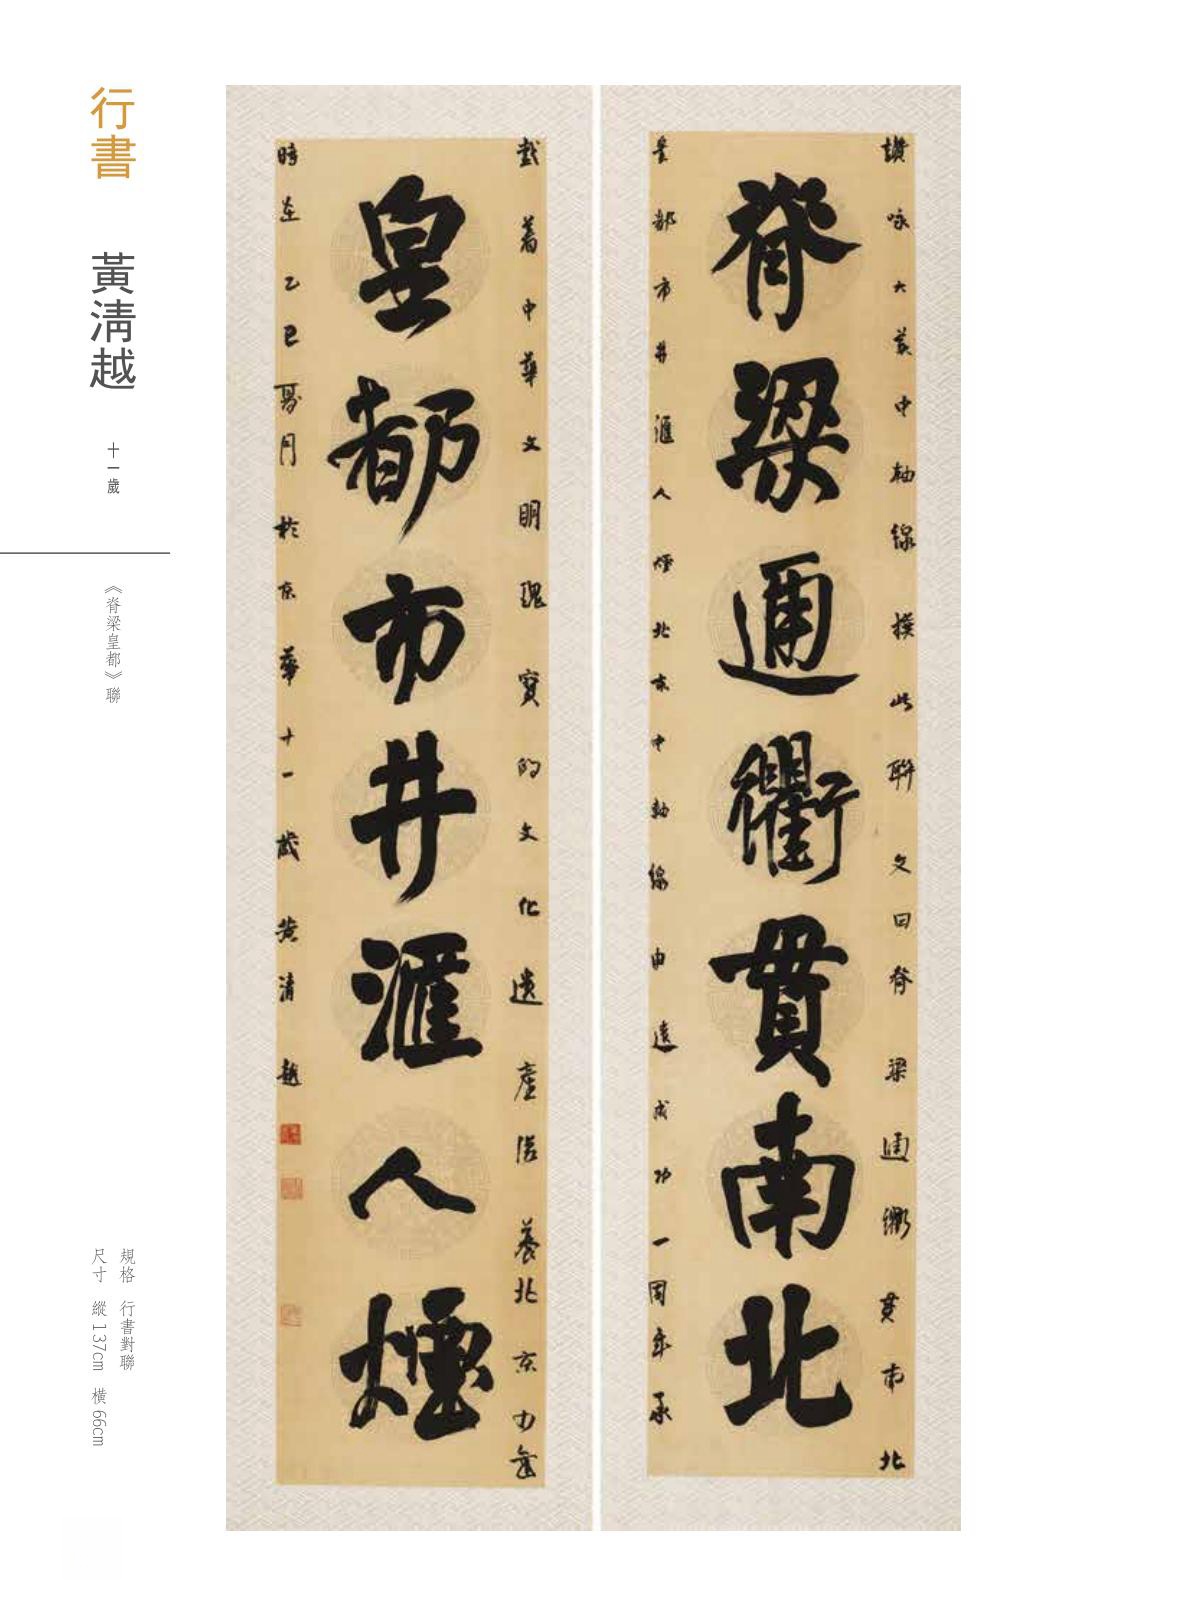 行書 黃清越 十一歲
《脊梁皇都》聯
規格 行書對聯
尺寸 縱137cm 橫66cm
讚咏大美中軸線撰此聯文曰脊梁通衢貫南北
脊梁通衢貫南北
皇都市井滙人煙北京中軸線申遺成功一周年承
載着中華文明瑰寶的文化遺產滋養北京
皇都市井滙人煙
時在乙巳夏月於京華十一歲黃清越